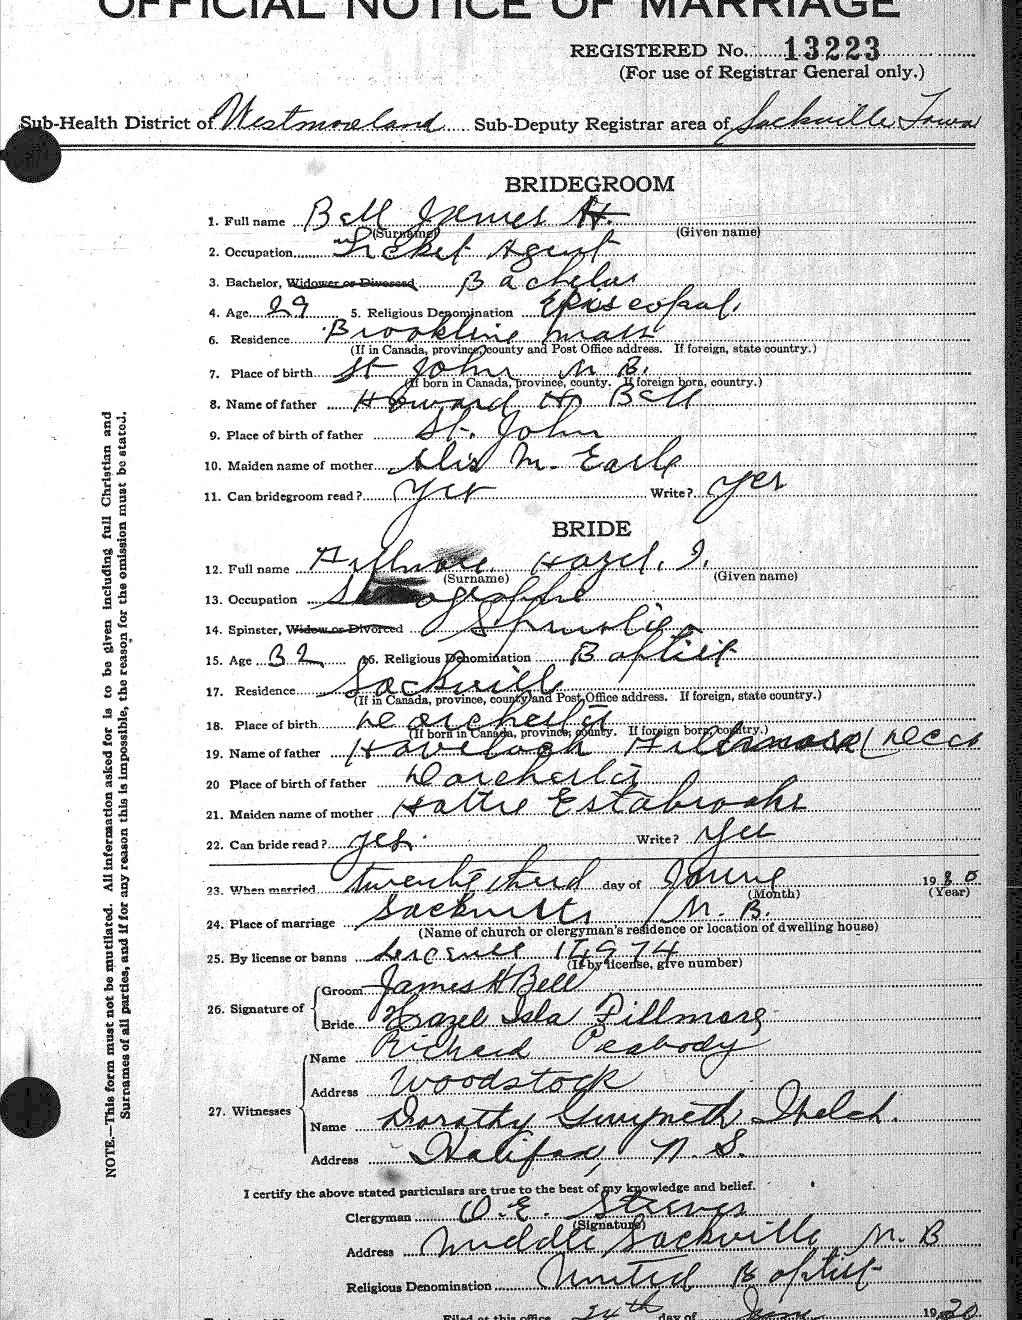 OFFICIAL NOTICE OF MARRIAGE
REGISTERED No. 13223
(For use of Registrar General only.)
Sub-Health District of Westmoreland Sub-Deputy Registrar area of Sackville Town
BRIDEGROOM
1. Full name Bell James H.
(Surname) (Given name)
2. Occupation Ticket Agent
3. Bachelor, Widower or Divorced Bachelor
4. Age 29 5. Religious Denomination Episcopal.
6. Residence Brookline Mass
(If in Canada, province, county and Post Office address. If foreign, state country.)
7. Place of birth St John N. B.
(If born in Canada, province, county. If foreign born, country.)
8. Name of father Howard H. Bell
9. Place of birth of father St. John
10. Maiden name of mother M. Earle
11. Can bridegroom read? Yes Write? Yes
BRIDE
12. Full name Fillmore Hazel. I.
(Surname) (Given name)
13. Occupation
14. Spinster, Widow or Divorced Spinster
15. Age 32 16. Religious Denomination Baptist
17. Residence Sackville
(If in Canada, province, county and Post Office address. If foreign, state country.)
18. Place of birth Dorchester
(If born in Canada, province, county. If foreign born, country.)
19. Name of father Havelock Fillmore
20 Place of birth of father Dorchester
21. Maiden name of mother Hattie Estabrooks
22. Can bride read? Yes. Write? Yes
23. When married twenty third day of June 1930
(Month) (Year)
24. Place of marriage Sackville N. B.
(Name of church or clergyman's residence or location of dwelling house)
25. By license or banns License 14974
(If by license, give number)
26. Signature of Groom James H Bell
Bride Hazel Isla Fillmore
27. Witnesses Name Richard Peabody
Address Woodstock
Name Dorothy Gwyneth
Address Halifax, N. S.
I certify the above stated particulars are true to the best of my knowledge and belief.
Clergyman O. E. Steeves
(Signature)
Address Middle Sackville N. B
Religious Denomination United Baptist
Filed at this office 24th day of June 1930
NOTE.—This form must not be mutilated. All information asked for is to be given including full Christian and
Surnames of all parties, and if for any reason this is impossible, the reason for the omission must be stated.